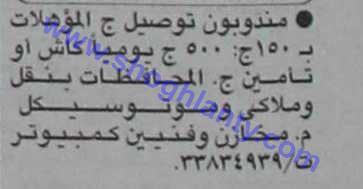 ● مندوبون توصيل ج المؤهلات
بـ ١٥٠ج: ٥٠٠ ج يومى كاش او
تامين ج. المحافظات بنقل
وملاكى وموتوسيكل
م. مخازن وفنيين كمبيوتر
ت/٣٣٨٣٤٩٣٩.
www.shoghlanty.com